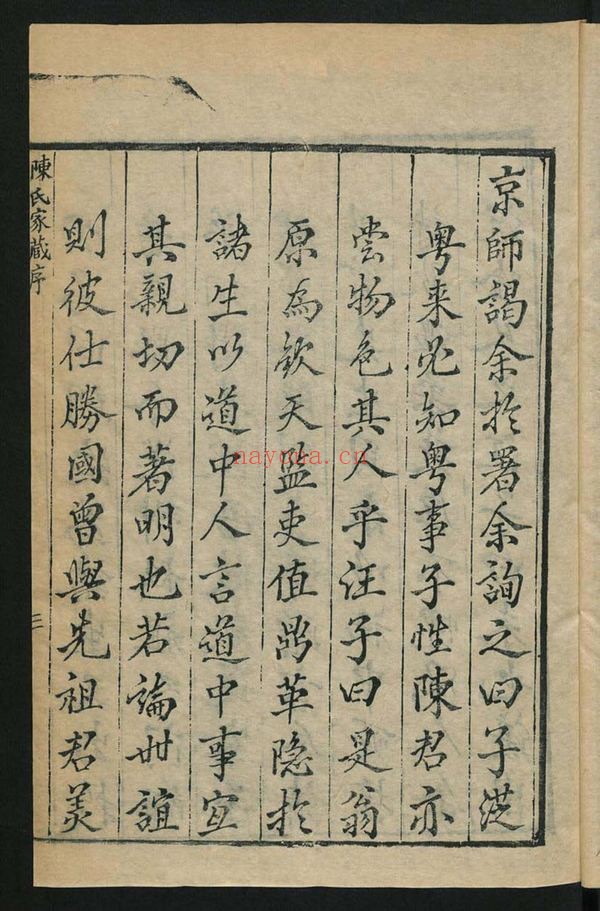 京師謁余扵署余詢之曰子從
粤来必知粤事子性陳君亦
尝物色其人乎汪子曰是翁
原為欽天監吏值鼎革隐扵
諸生以道中人言道中事宜
其親切而著明也若論世誼
則彼仕勝國曾與先祖君美
陳氏家蔵序
三